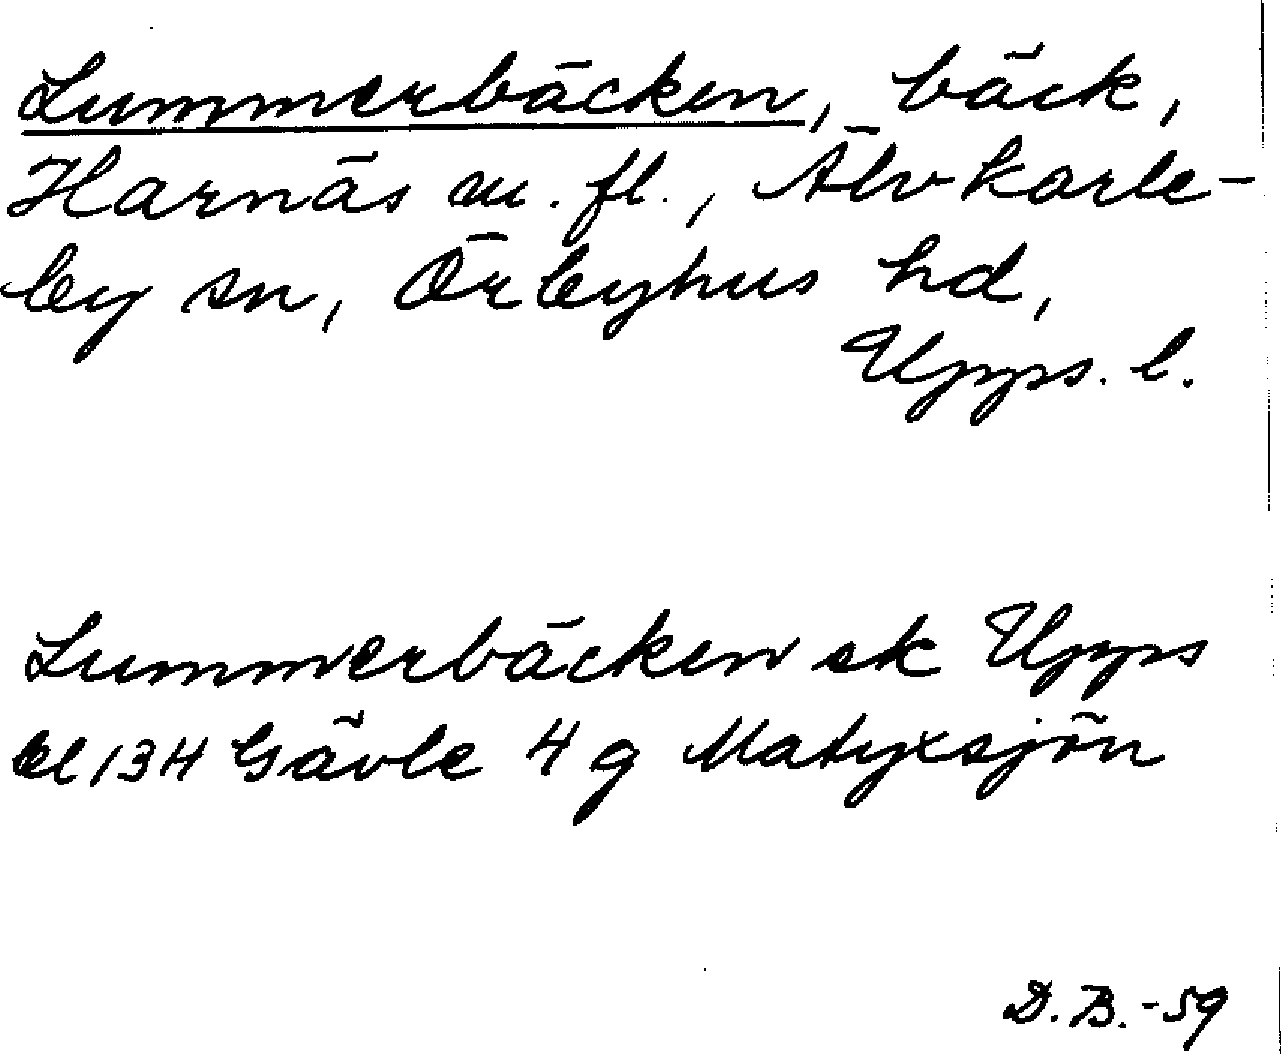 Lummerbäcken, bäck,
Harnäs m. fl., Älvkarle-
by sn, Örbyhus hd,
Upps. l.
Lummerbäcken ek Upps
bl 13H Gävle 4 g Matyxsjön
D. B. -59